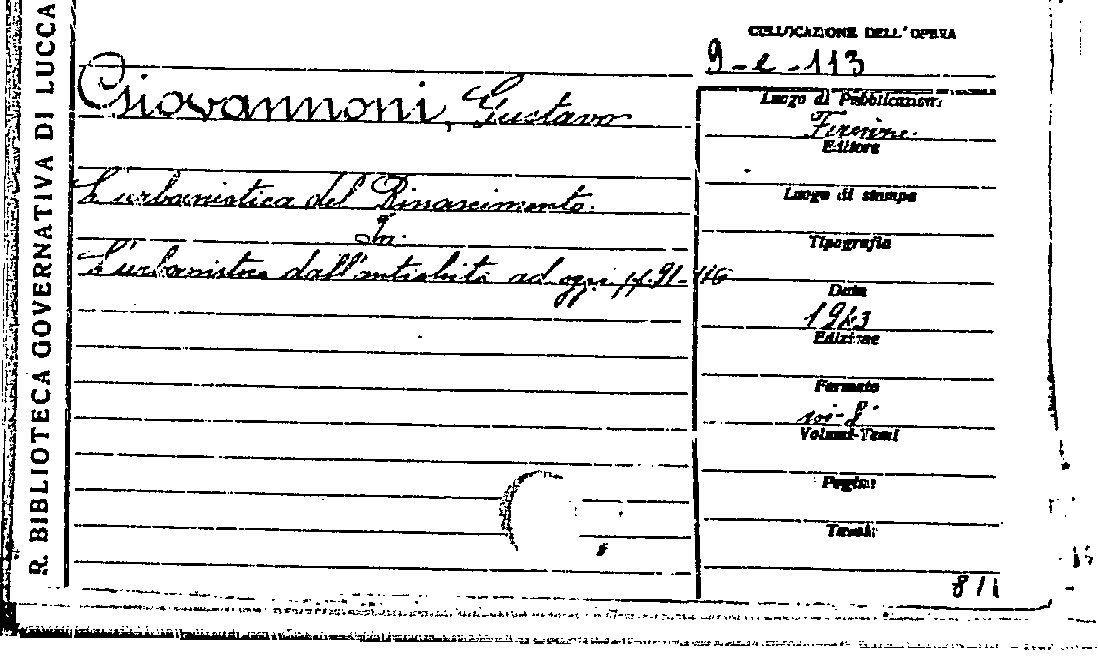 R. BIBLIOTECA GOVERNATIVA DI LUCCA
COLLOCAZIONE DELL'OPERA
9-e-113
Giovannoni, Gustavo
L'urbanistica del Rinascimento.
In:
L'urbanistica dall'antichità ad oggi pp. 91-116
Luogo di Pubblicazione
Firenze.
Editore
Luogo di stampa
Tipografia
Data
1943
Edizione
Formato
in-8°
Volumi-Tomi
Pagine
Tavole